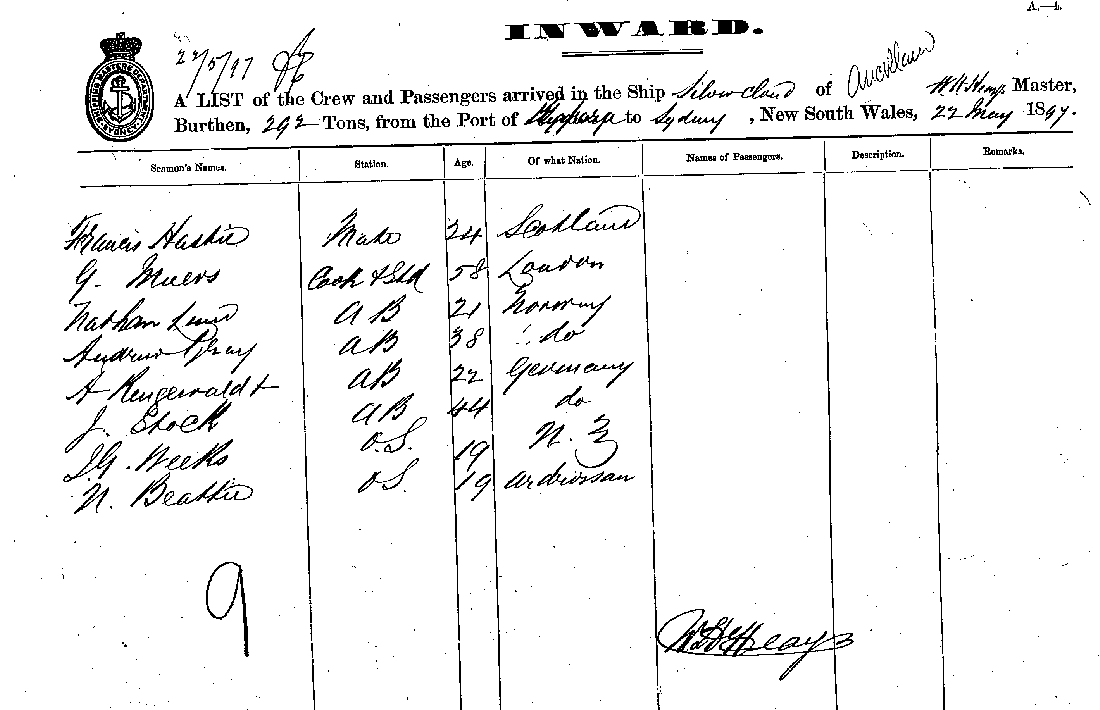 A.—4.
INWARD.
22/5/97
A LIST of the Crew and Passengers arrived in the Ship Silver cloud of Auckland W H Heays Master,
Burthen, 292 Tons, from the Port of to Sydney, New South Wales, 22 May 1897.
Seamen's Names. Station. Age. Of what Nation. Names of Passengers. Description. Remarks.
Francis Hastie Mate 24 Scotland
G. Myers Cook & Std 58 London
Nathan Lund AB 21 Norway
Andrew Gray AB 38 do
A Ringewaldt AB 22 Germany
J. Stock AB 44 do
Weeks O.S. 19 N. Z
N. Beattie OS. 19 Ardrossan
9
W H Heays